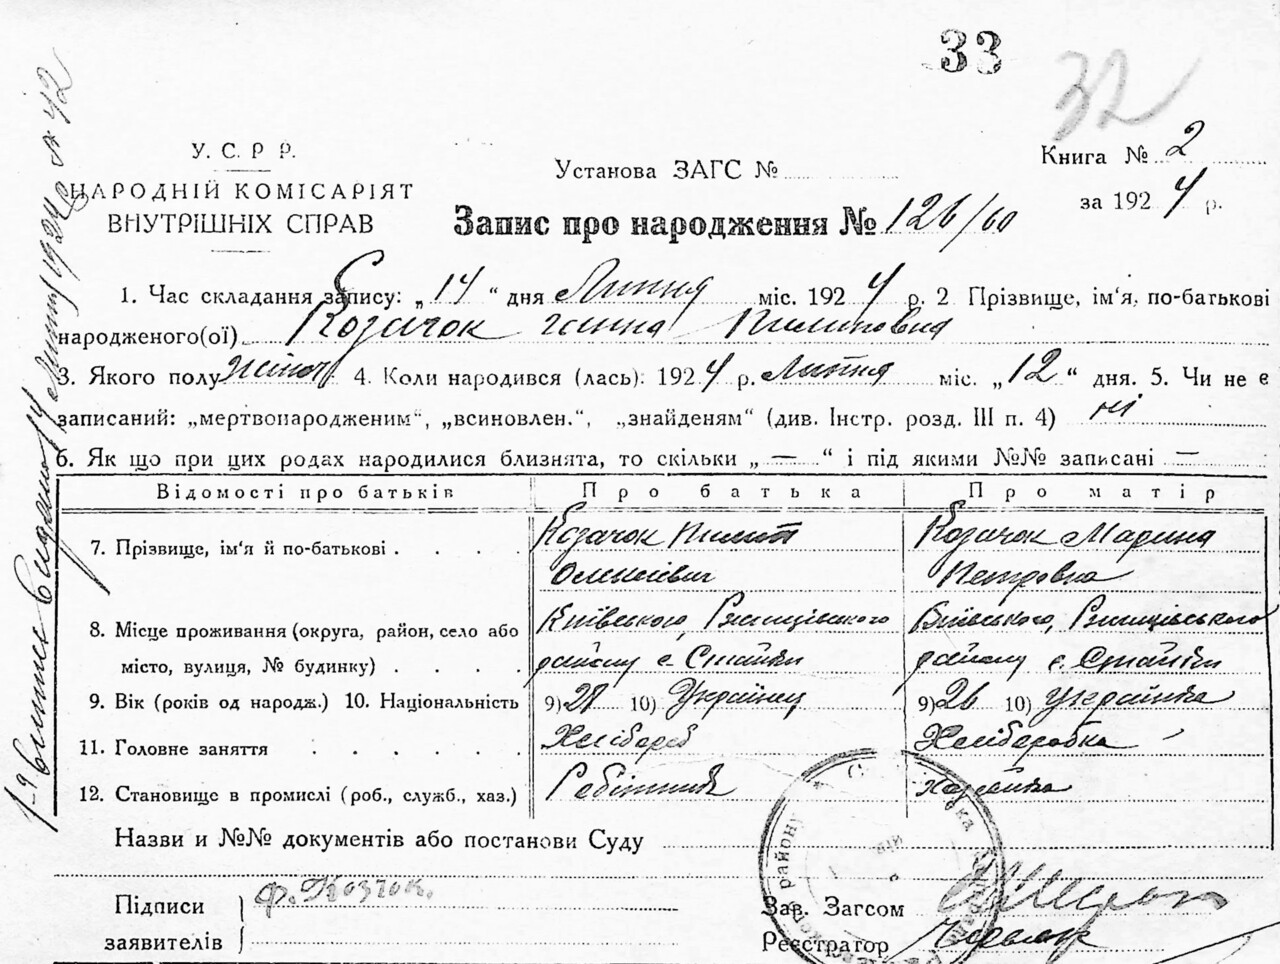 33
32
У. С. Р Р.
НАРОДНІЙ КОМІСАРІЯТ
ВНУТРІШНІХ СПРАВ
Установа ЗАГС №
Книга № 2
за 1924 р.
Запис про народження № 126/60
1. Час складання запису: „14“ дня Липня міс. 1924 р. 2 Прізвище, ім'я, по-батькові
народженого(ої) Козачок Ганна Пилиповна
3. Якого полу жіноч 4. Коли народився (лась): 1924 р. Липня міс. „12“ дня. 5. Чи не є
записаний: „мертвонародженим“, „всиновлен.“, „знайденям“ (див. Інстр. розд. III п. 4) ні
6. Як що при цих родах народилися близнята, то скільки „—“ і під якими №№ записані —
Відомості про батьків Про батька Про матір
7. Прізвище, ім'я й по-батькові Козачок Пилип Козачок Марина
Олексієвич Петровна
8. Місце проживання (округа, район, село або Київського, Ржищівського Київського, Ржищівського
місто, вулиця, № будинку) району с. Стайки району с. Стайки
9. Вік (років од народж.) 10. Національність 9) 28 10) Українец 9) 26 10) Українка
11. Головне заняття Хлібороб Хліборобка
12. Становище в промислі (роб., служб., хаз.) Робітник Хазяйка
Назви и №№ документів або постанови Суду
Підписи Ф. Козчок.
заявителів
Зав. Загсом
Реєстратор
району